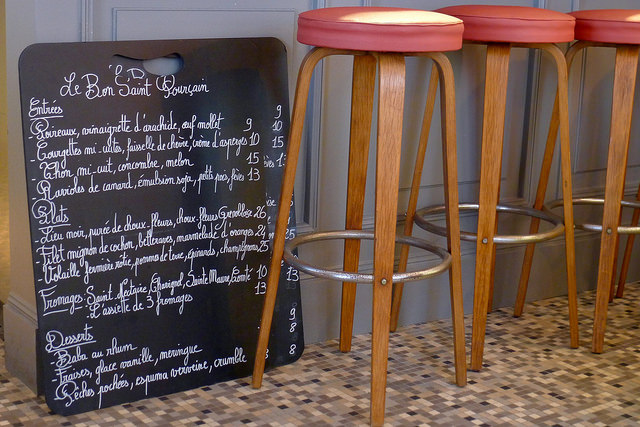 Le Bon Saint Pourçain
Entrées
- Poireaux, vinaigrette d'arachide, œuf mollet 9 9
- Courgettes mi-cuites, faisselle de chèvre, crème d'asperges 10 10
- Thon mi-cuit, concombre, melon 15 15
- Ravioles de canard, émulsion soja, petits pois, fèves 13
Plats
- Lieu noir, purée de choux-fleurs, choux-fleurs Grenobloise 26
- Filet mignon de cochon, betteraves, marmelade d'oranges 24
- Volaille fermière rôtie, pomme de terre, épinards, champignons 25
Fromages - Saint Nectaire, Chavignol, Sainte Maure, Comté 10 10
- L'assiette de 3 fromages 13 13
Desserts
- Baba au rhum 9
- Fraises, glace vanille, meringue 8
- Pêches pochées, espuma verveine, crumble 8 8